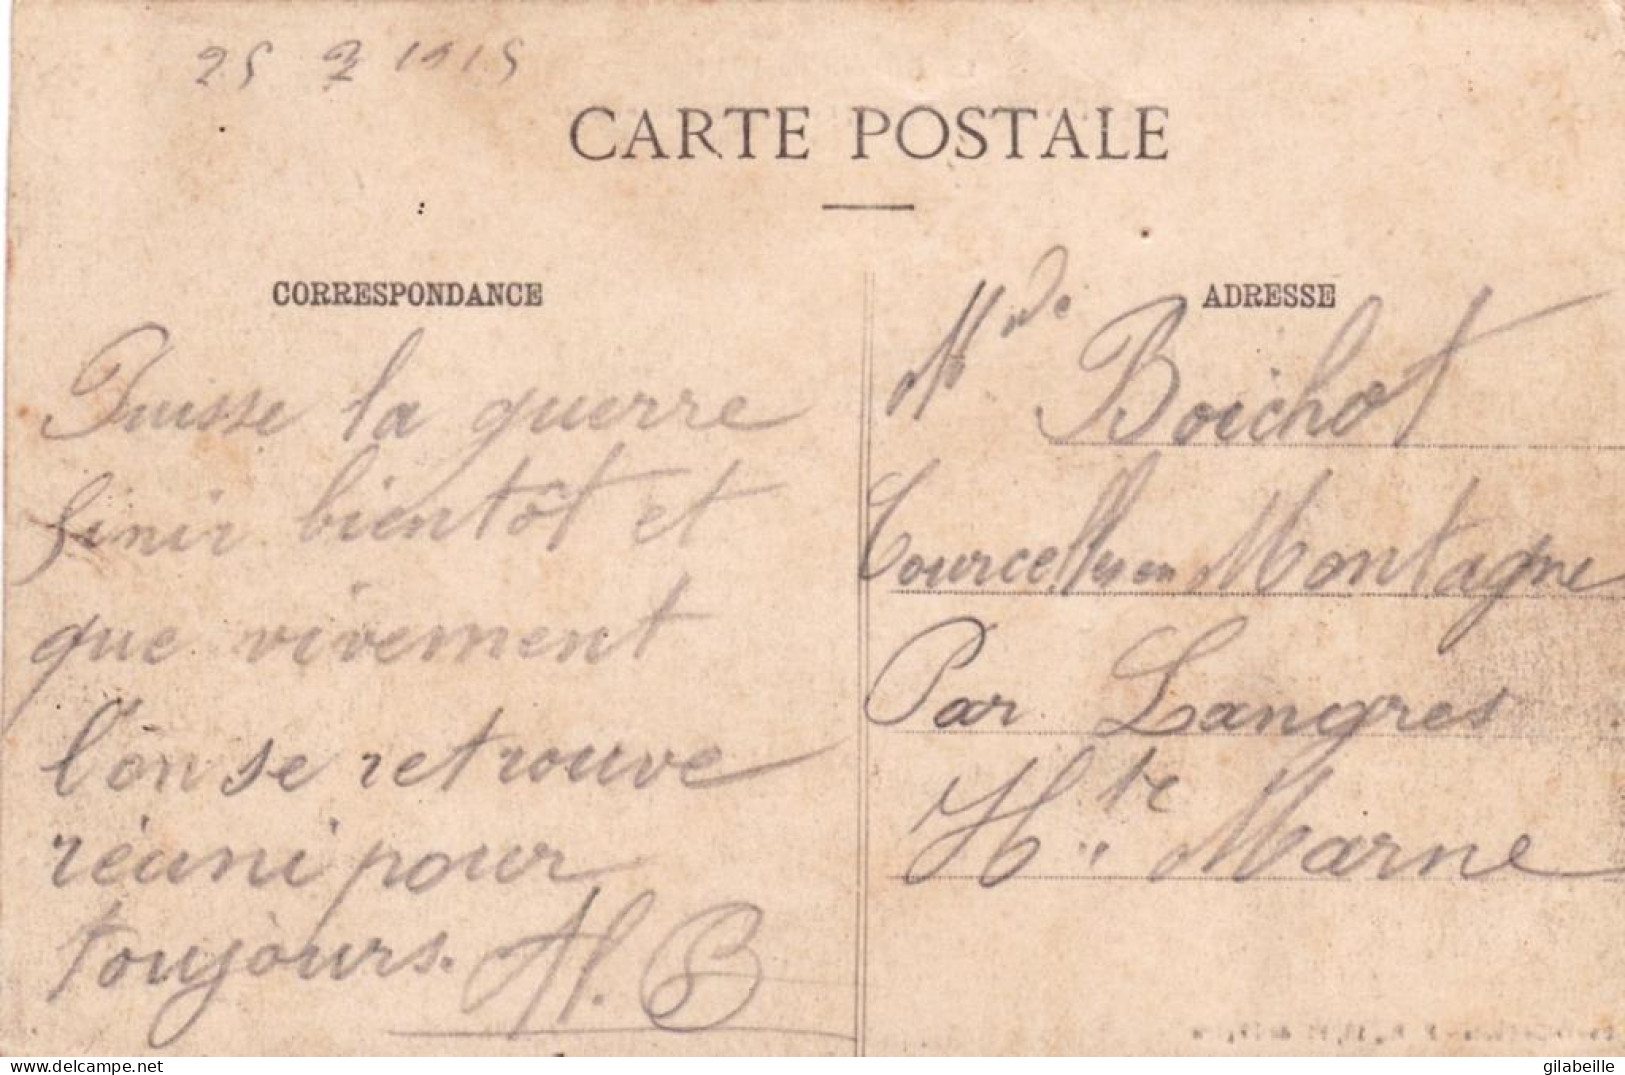 25 7 1915
CARTE POSTALE
CORRESPONDANCE
Puisse la guerre
finir bientôt et
que vivement
l'on se retrouve
réuni pour
toujours. Al. B
ADRESSE
Mde Boichot
Courcelles en Montagne
Par Langres
Hte Marne
gilabeille